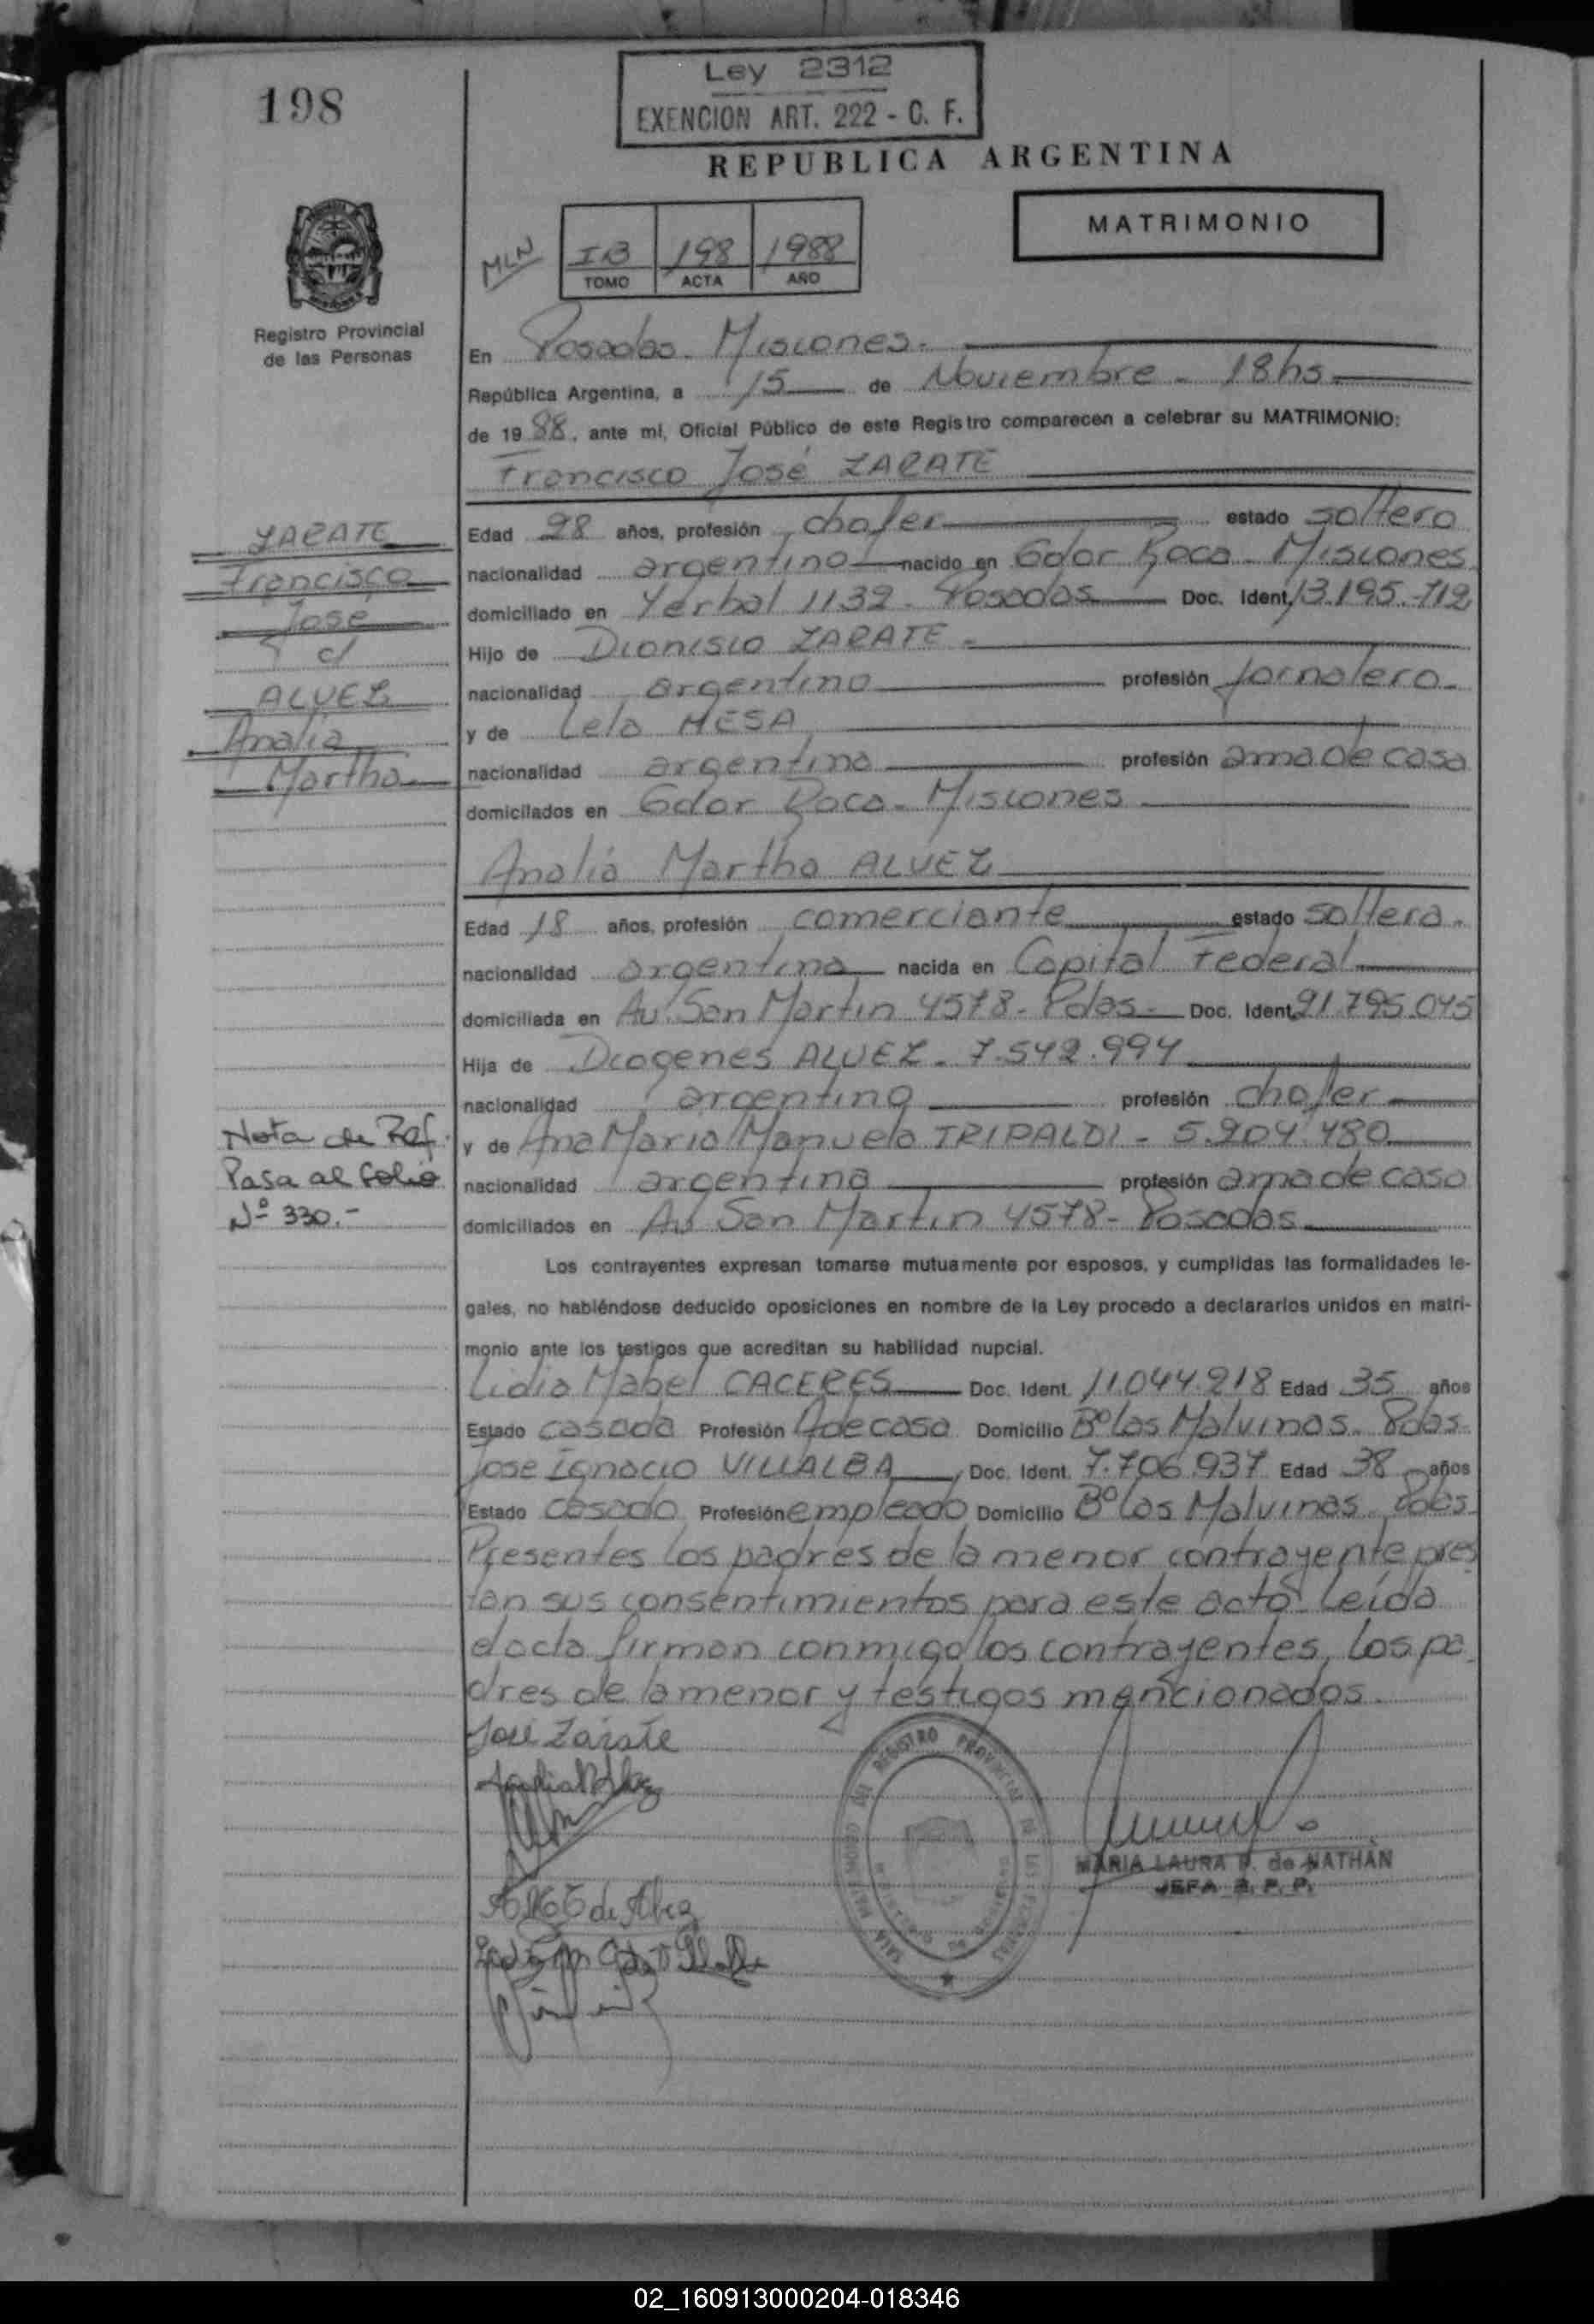 198
Ley 2312
EXENCION ART. 222 - C. F.
REPUBLICA ARGENTINA
MATRIMONIO
MLN
IB 198 1988
TOMO ACTA AÑO
Registro Provincial
de las Personas
En Posadas. Misiones.
República Argentina, a 15 de Noviembre - 18hs
de 1988, ante mi, Oficial Público de este Registro comparecen a celebrar su MATRIMONIO:
Francisco José ZARATE
ZARATE
Francisco
Jose
c/
ALVEZ
Analia
Martha
Edad 28 años, profesión chofer estado soltero
nacionalidad argentino nacido en Gdor Roca - Misiones
domiciliado en Yerbal 1132 - Posadas Doc. Ident. 13.195.712
Hijo de Dionisio ZARATE -
nacionalidad argentino profesión jornalero.
y de Lela MESA
nacionalidad argentina profesión ama de casa
domicilados en Gdor Roca - Misiones
Analia Martha ALVEZ
Edad 18 años, profesión comerciante estado soltera.
nacionalidad argentina nacida en Capital Federal
domiciliada en Av. San Martin 4578 - Pdas - Doc. Ident. 21.795.045
Hija de Diogenes ALVEZ - 7.542.994
nacionalidad argentino profesión chofer
y de Ana Maria Manuela TRIPALDI - 5.204.480
nacionalidad argentina profesión ama de casa
domiciliados en Av San Martin 4578 - Posadas
Nota de Ref.
Pasa al folio
Nº 330.-
Los contrayentes expresan tomarse mutuamente por esposos, y cumplidas las formalidades le-
gales, no habiéndose deducido oposiciones en nombre de la Ley procedo a declararlos unidos en matri-
monio ante los testigos que acreditan su habilidad nupcial.
Lidia Mabel CACERES Doc. Ident. 11.044.218 Edad 35 años
Estado casada Profesión A de casa Domicilio Bº Las Malvinas. Pdas.
Jose Ignacio VILLALBA Doc. Ident. 7.706.937 Edad 38 años
Estado casado Profesión empleado Domicilio Bº Las Malvinas. Pdas.
Presentes los padres de la menor contrayente pres
tan sus consentimientos para este acto. Leida
el acta firman conmigo los contrayentes, los pa
dres de la menor y testigos mencionados.
José Zárate
REGISTRO PROVINCIAL DE LAS PERSONAS
MARIA LAURA de NATHAN
JEFA R. P. P.
02_160913000204-018346